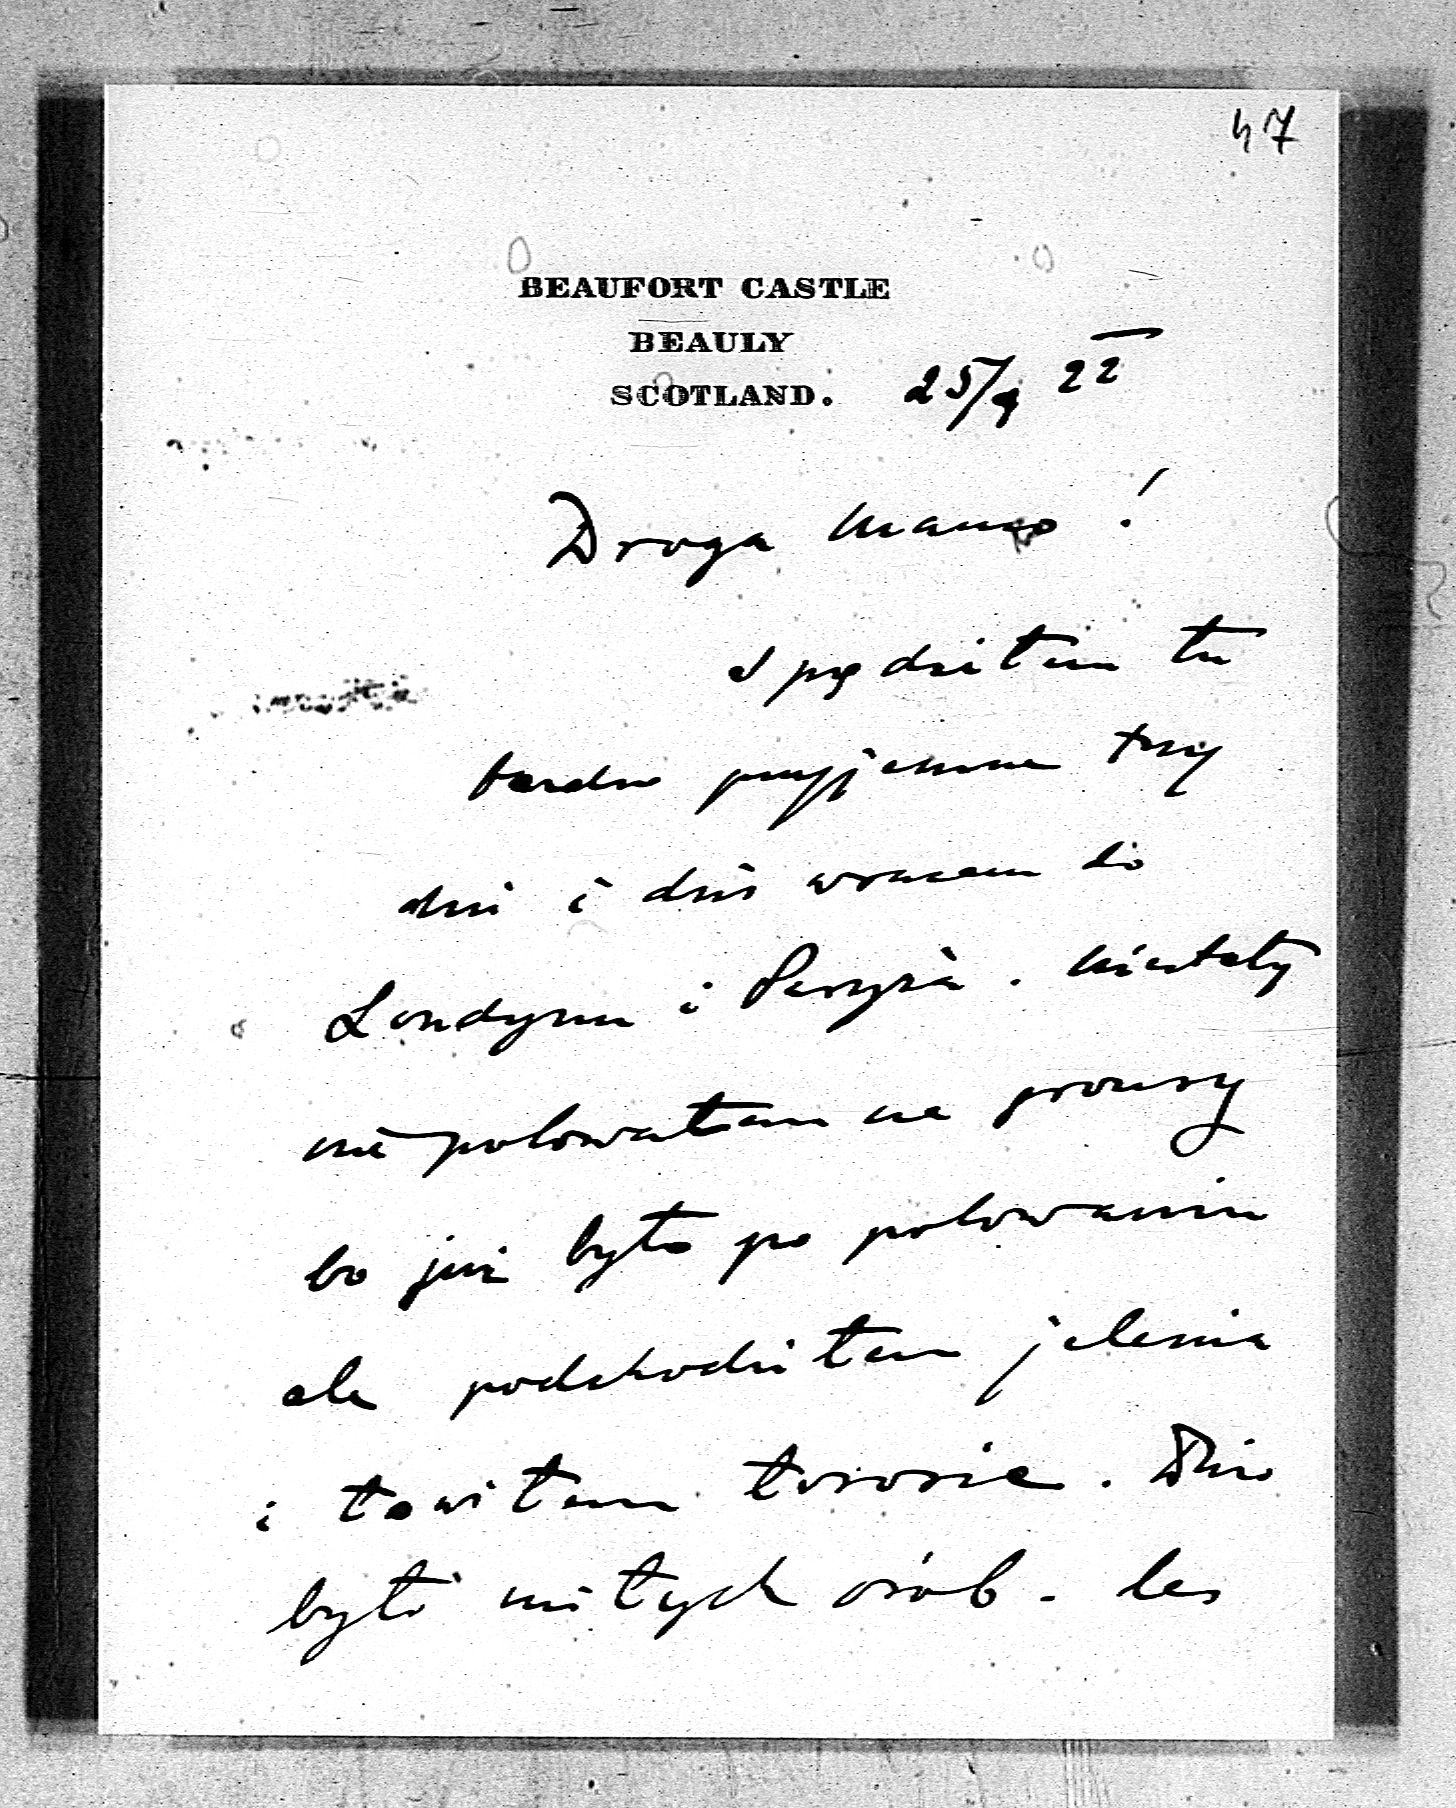 47
BEAUFORT CASTLE
BEAULY
SCOTLAND.
25/9 22
Droga Mamo!
Spędziłem tu
bardzo przyjemne trzy
dni i dziś wracam do
Londynu i Paryża. Niestety
nie polowałem na grousy
bo już było po polowaniu
ale podchodziłem jelenia
i łowiłem łososie. Dużo
było miłych osób. les